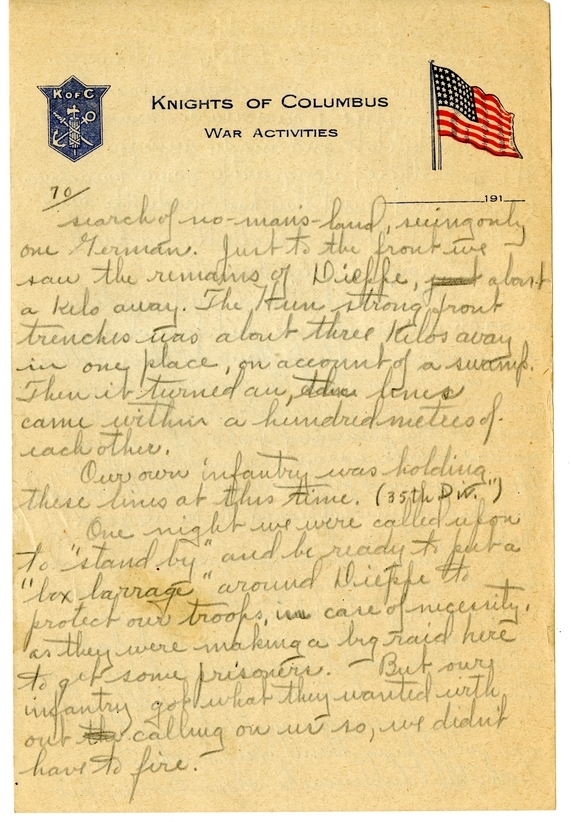 K OF C
KNIGHTS OF COLUMBUS
WAR ACTIVITIES
70/
191
search of no-man's-land, seeing only
one German. Just to the front we
saw the remains of Dieppe, just about
a kilo away. The Hun strong front
trenches was about three kilos away
in one place, on account of a swamp.
Then it turned an, the lines
came within a hundred meters of
each other.
Our own infantry was holding
these lines at this time. (35th Div.")
One night we were called upon
to "stand by" and be ready to put a
"box barrage" around Dieppe to
protect our troops, in case of necessity,
as they were making a big raid here
to get some prisoners. - But our
infantry got what they wanted with
out the calling on us so, we didn't
have to fire.-